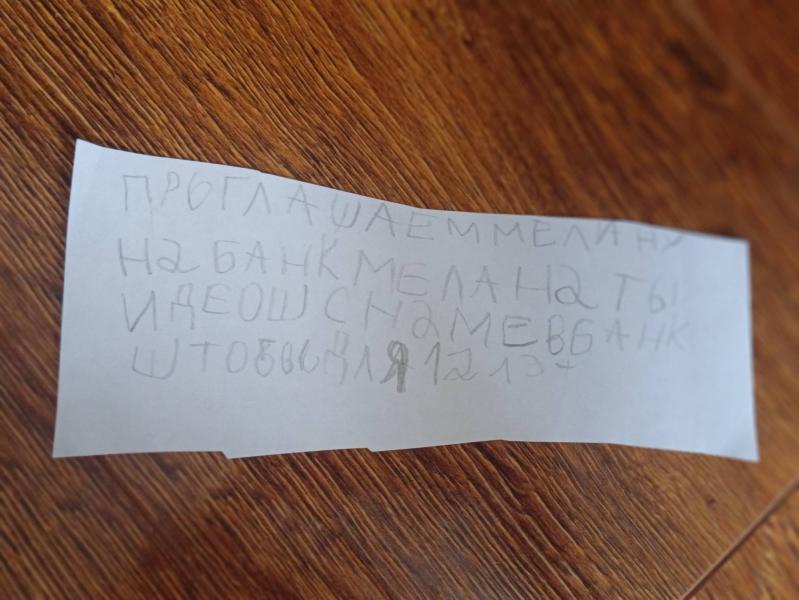 ПРОГЛАШАЕМ МЕЛИНУ
На БАНК МЕЛАНа ТЫ
ИДЕОШ С НаМЕ В БАНК
ШТОБЫ ДЛЯ 12 13+